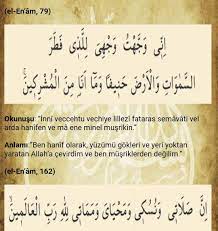 (el-En'âm, 79)
اِنّٖى وَجَّهْتُ وَجْهِىَ لِلَّذٖى فَطَرَ
السَّمٰوَاتِ وَالْاَرْضَ حَنٖيفًا وَمَٓا اَنَا مِنَ الْمُشْرِكٖينَ
Okunuşu: "İnnî veccehtu vechiye lillezî fataras semâvâti vel
arda hanîfen ve mâ ene minel muşrikîn."
Anlamı: "Ben hanif olarak, yüzümü gökleri ve yeri yoktan
yaratan Allah'a çevirdim ve ben müşriklerden değilim."
(el-En'âm, 162)
اِنَّ صَلَاتٖى وَنُسُكٖى وَمَحْيَاىَ وَمَمَاتٖى لِلّٰهِ رَبِّ الْعَالَمٖينَ